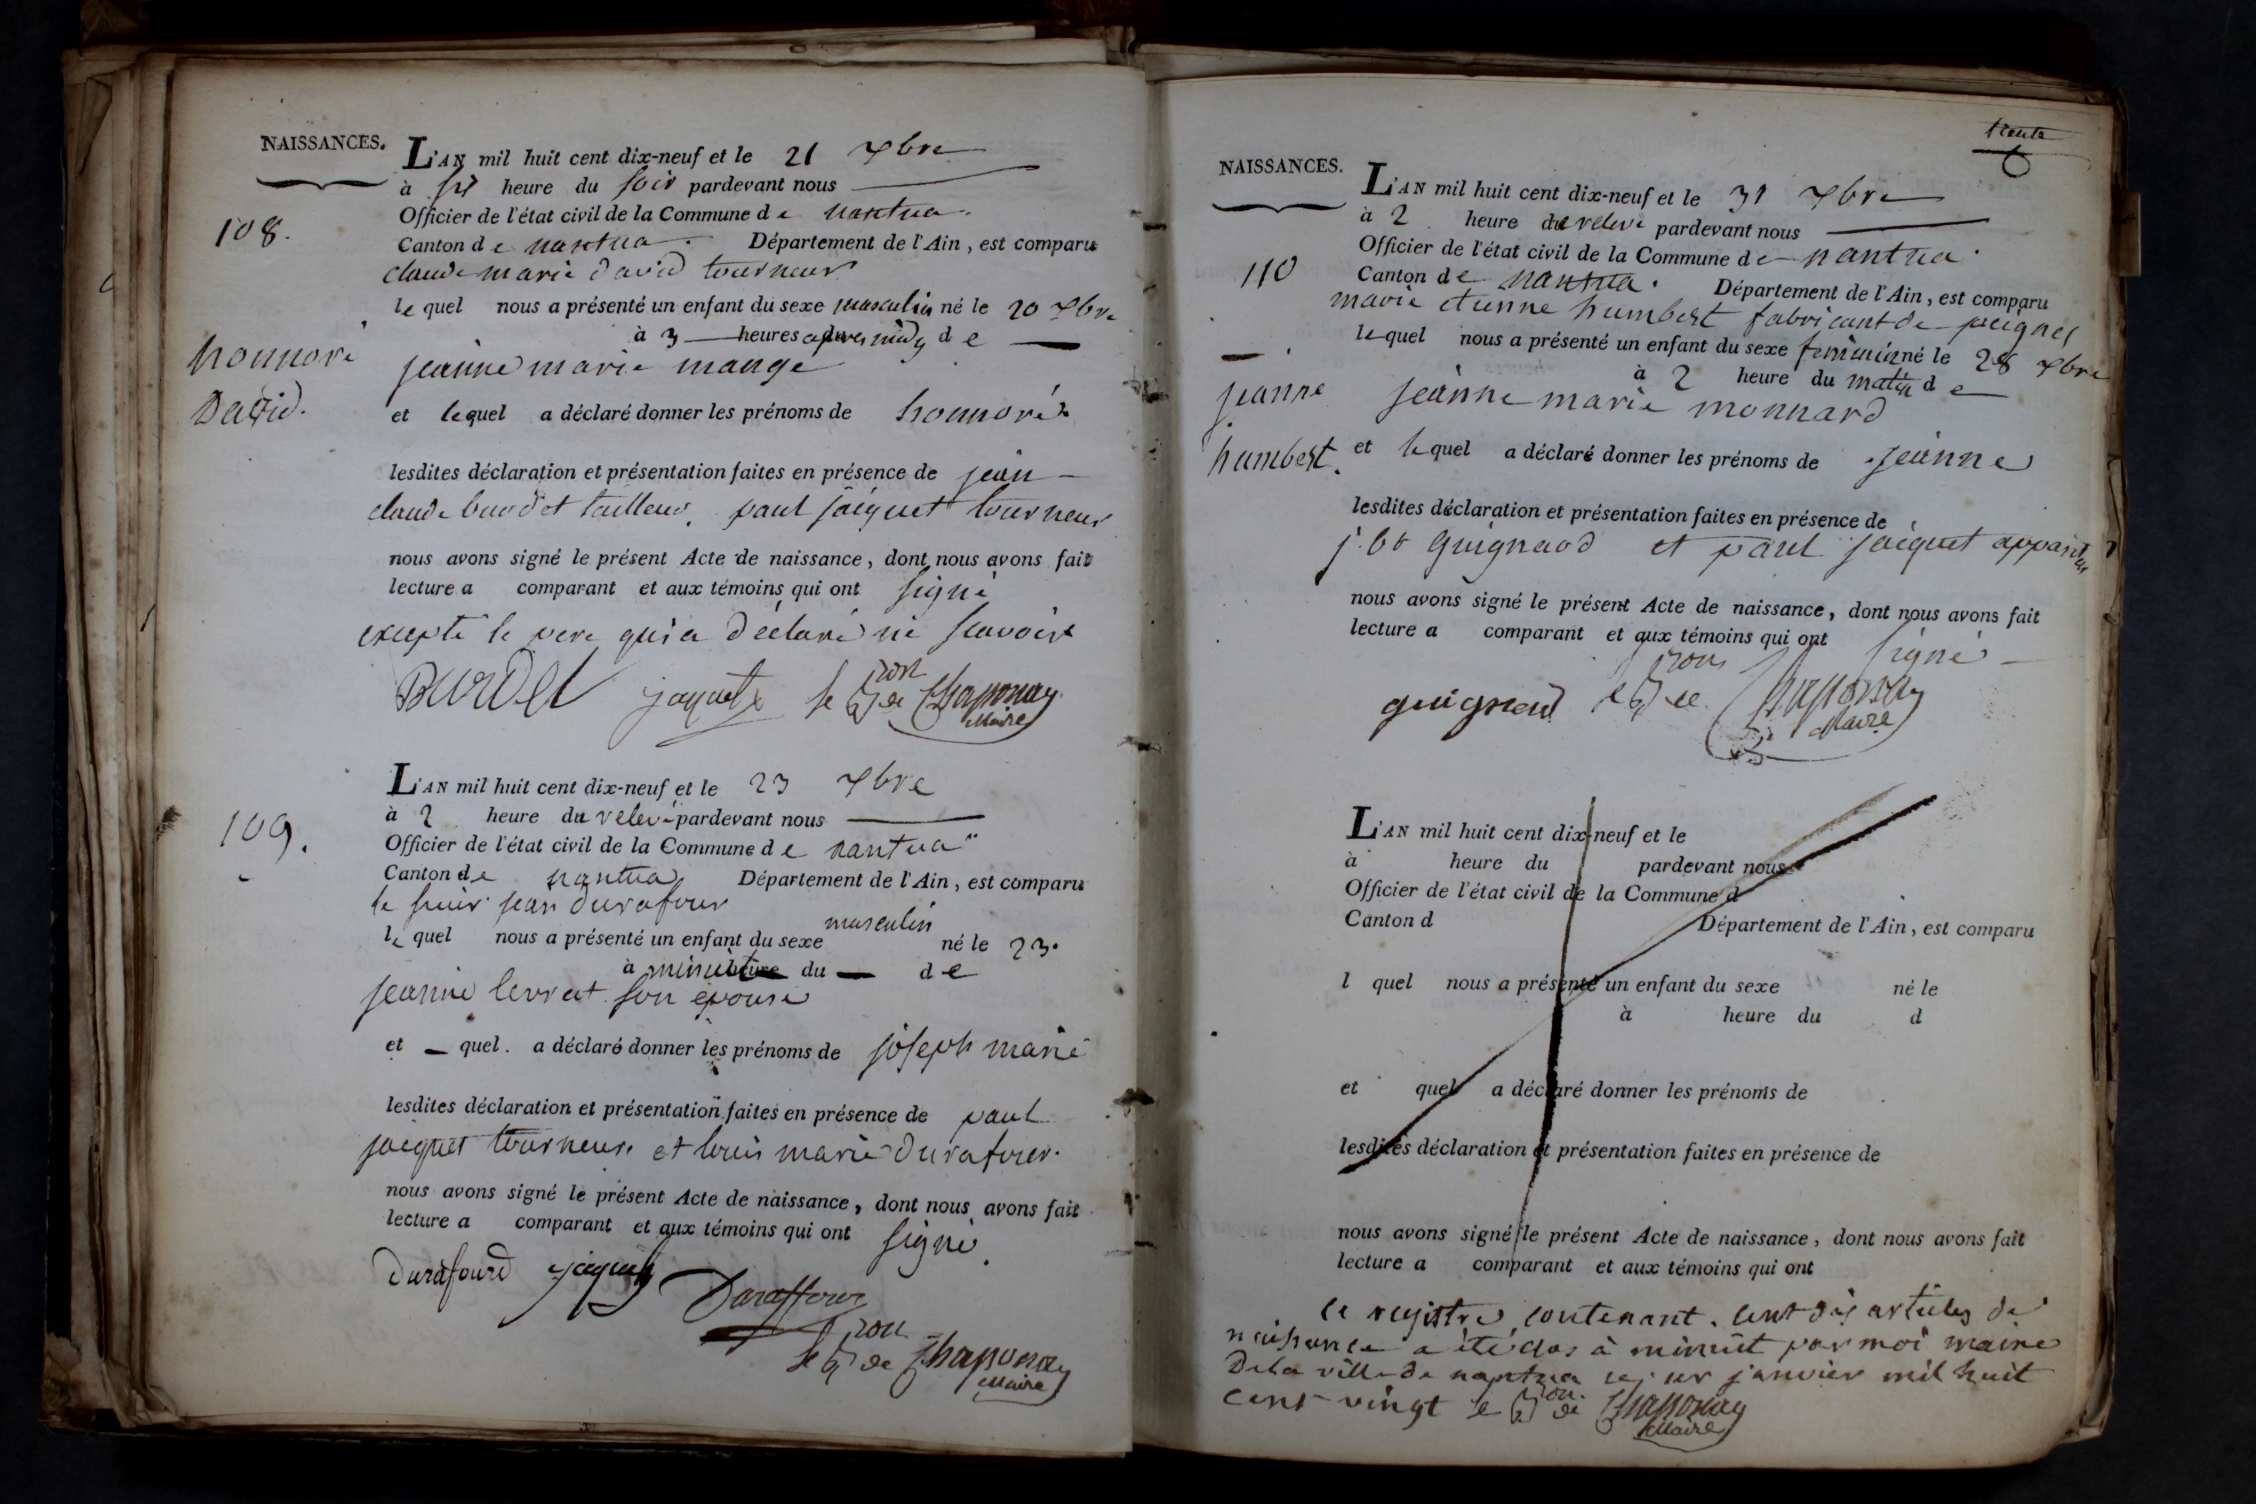 NAISSANCES.
L'AN mil huit cent dix-neuf et le 21 xbre
à six heure du soir pardevant nous
Officier de l'état civil de la Commune de nantua.
108.
Canton de nantua. Département de l'Ain, est comparu
claude marie david tourneur
lequel nous a présenté un enfant du sexe masculin né le 20 xbre
à 3 heures apres midy de
honnoré
David.
jeanne marie mange
et lequel a déclaré donner les prénoms de honnoré
lesdites déclaration et présentation faites en présence de jean
claude burdet tailleur, paul jaiquet tourneur
nous avons signé le présent Acte de naissance, dont nous avons fait
lecture a comparant et aux témoins qui ont signé
excepté le pere qui a déclaré ne scavoir
Burdet jaquet le de Chaponay
Maire
L'AN mil huit cent dix-neuf et le 23 xbre
à 2 heure du relevé pardevant nous
109.
Officier de l'état civil de la Commune de nantua
Canton de nantua Département de l'Ain, est comparu
le sieur jean durafour
lequel nous a présenté un enfant du sexe masculin né le 23.
à minuit heure du de
jeanne levrat son epouse
et quel. a déclaré donner les prénoms de joseph marie
lesdites déclaration et présentation faites en présence de paul
jaiquet tourneur. et louis marie durafour.
nous avons signé le présent Acte de naissance, dont nous avons fait
lecture a comparant et aux témoins qui ont signé.
Durafourd jaquet Duraffour
le de Chaponay
Maire
trente
NAISSANCES.
L'AN mil huit cent dix-neuf et le 31 xbre
à 2 heure du relevé pardevant nous
Officier de l'état civil de la Commune de nantua.
110
Canton de nantua. Département de l'Ain, est comparu
marie etienne humbert fabricant de peignes
lequel nous a présenté un enfant du sexe feminin né le 28 xbre
à 2 heure du matin de
jeanne
humbert.
jeanne marie monnard
et lequel a déclaré donner les prénoms de jeanne
lesdites déclaration et présentation faites en présence de
j. bt guignard et paul jaiquet
nous avons signé le présent Acte de naissance, dont nous avons fait
lecture a comparant et aux témoins qui ont signé
guignard le de Chaponay
Maire
L'AN mil huit cent dix-neuf et le
à heure du pardevant nous
Officier de l'état civil de la Commune d
Canton d Département de l'Ain, est comparu
l quel nous a présenté un enfant du sexe né le
à heure du d
et quel a déclaré donner les prénoms de
lesdites déclaration et présentation faites en présence de
nous avons signé le présent Acte de naissance, dont nous avons fait
lecture a comparant et aux témoins qui ont
le registre contenant cent dix articles de
naissance a été clos à minuit par moi maire
De la ville de nantua ce 1er janvier mil huit
cent vingt le de Chaponay
Maire